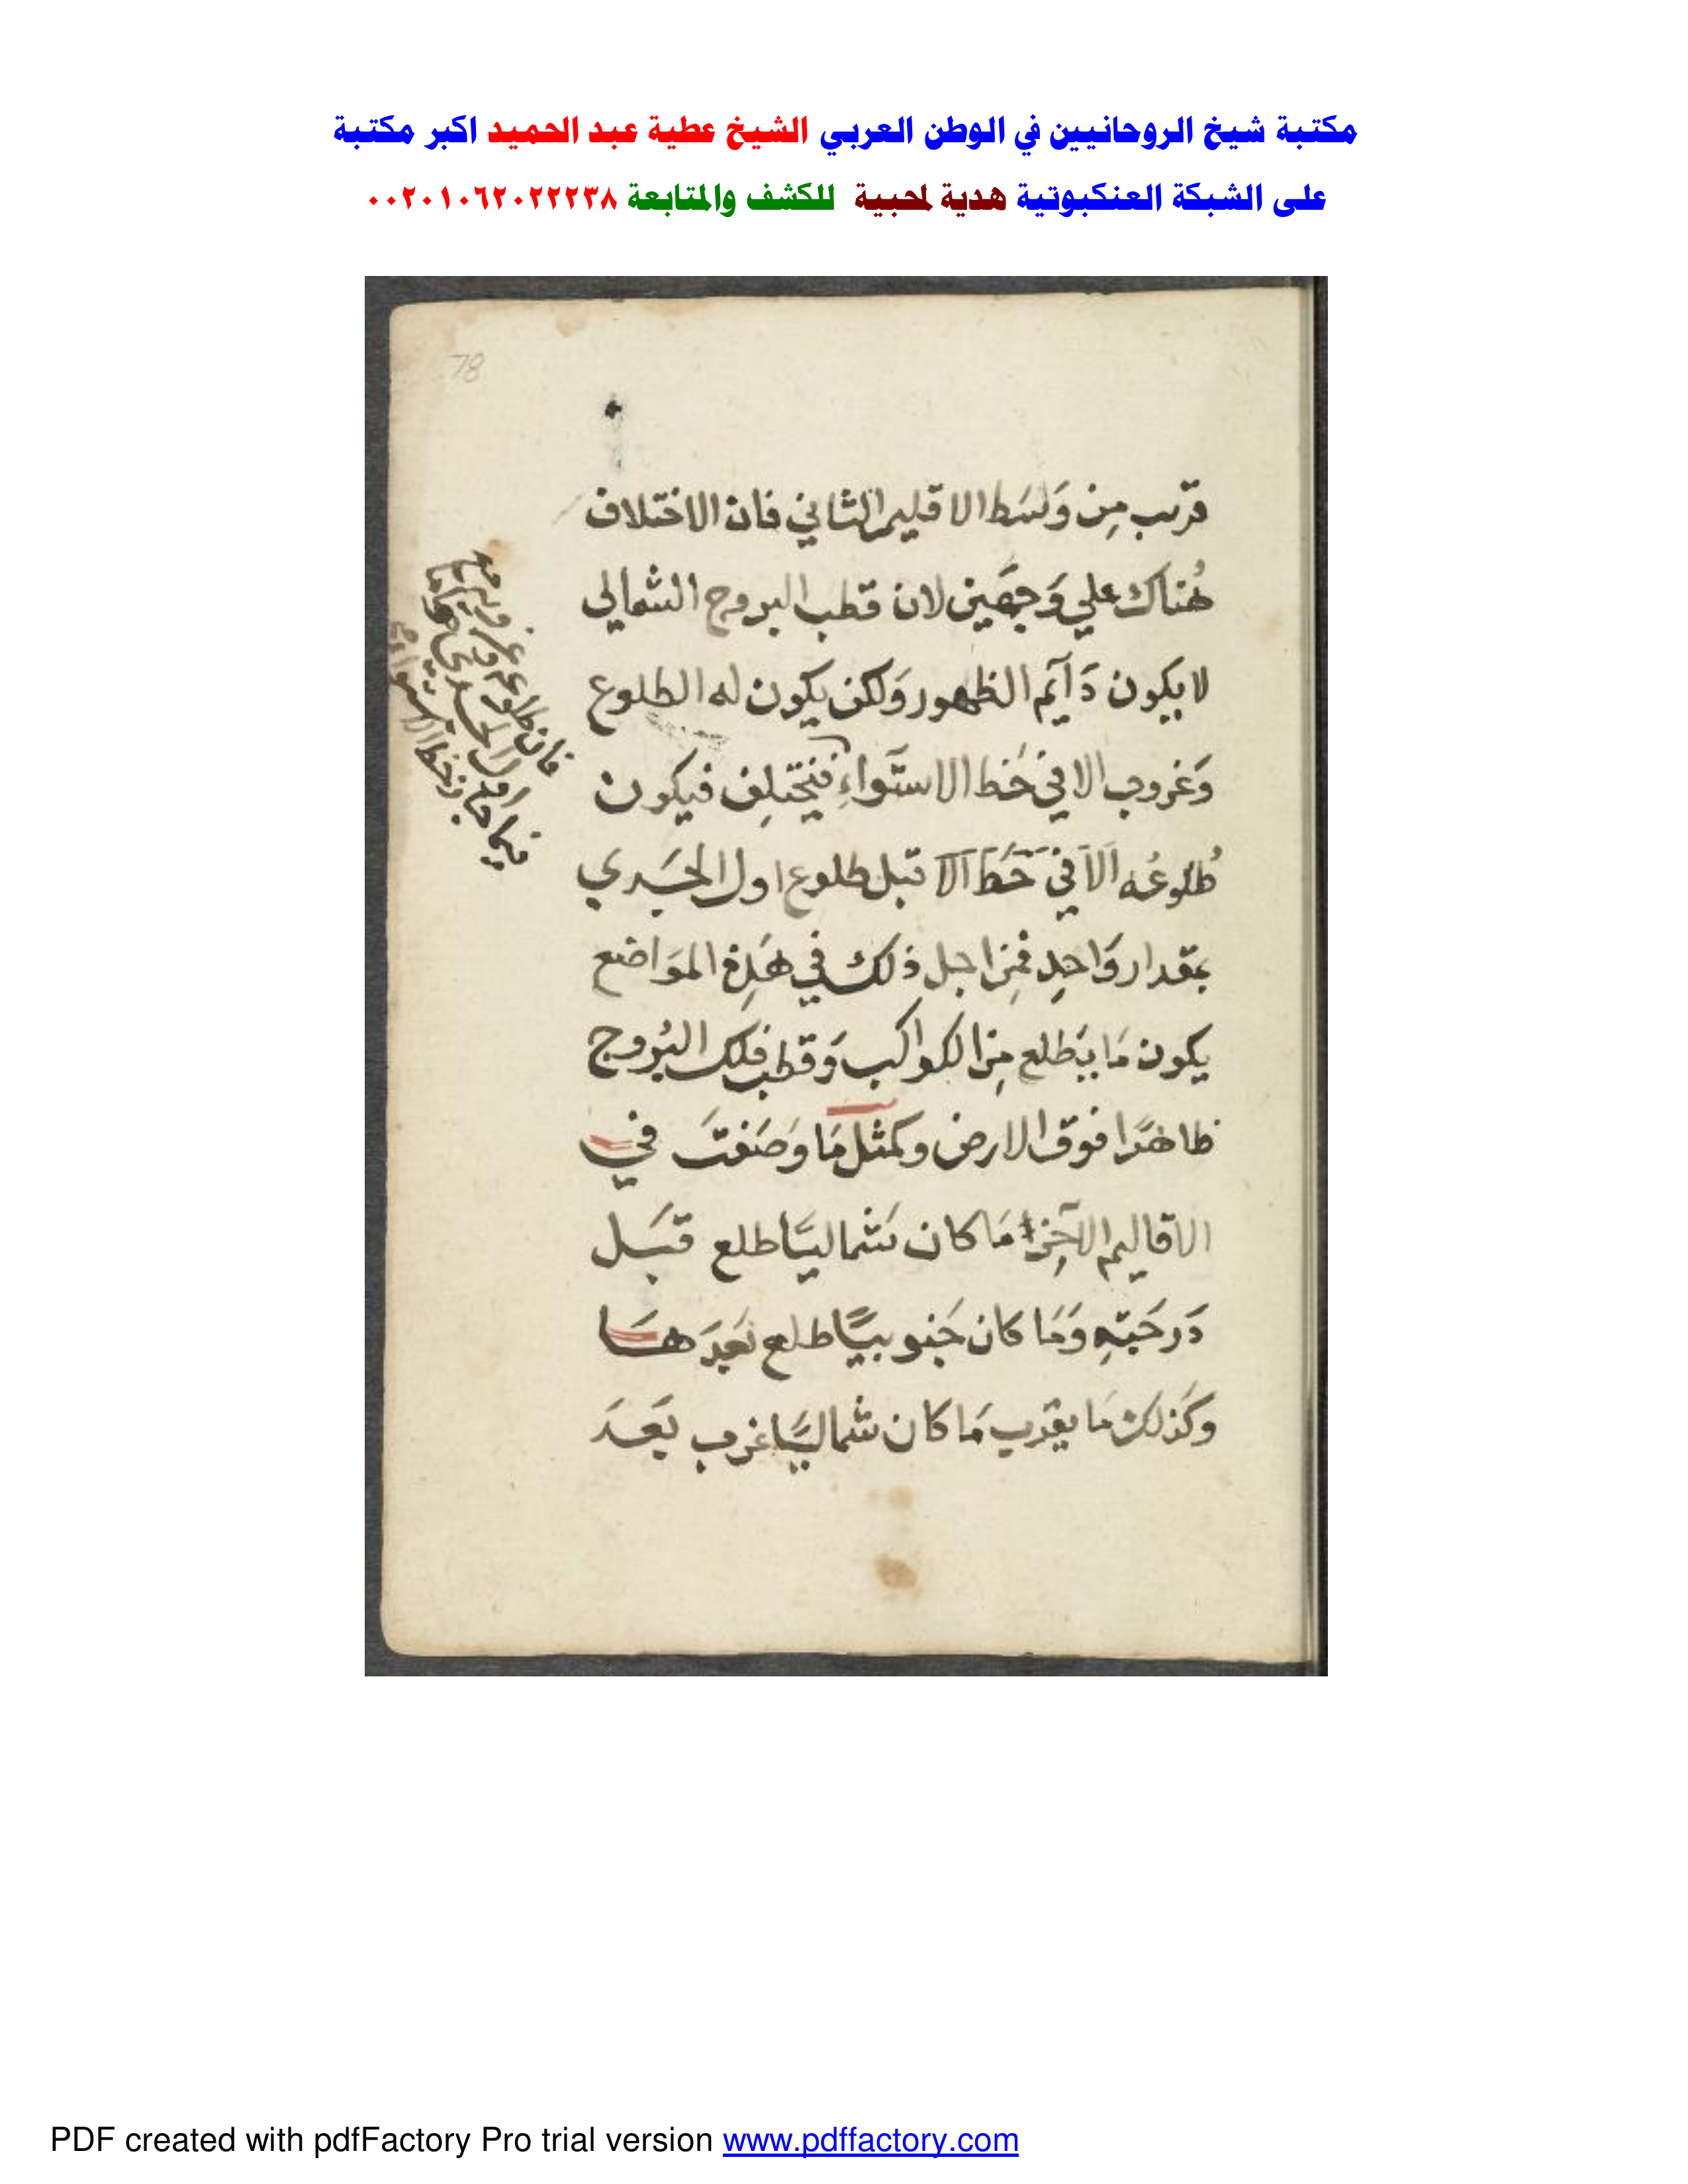 مكتبة شيخ الروحانيين في الوطن العربي الشيخ عطية عبد الحميد اكبر مكتبة
على الشبكة العنكبوتية هدية لمحبية للكشف والمتابعة ٠٠٢٠١٠٦٢٠٢٢٢٣٨
78
قرب مِن وَسَط الاقليم الثاني فان الاختلاف
هُناك علي وَجهَين لان قطب البروج الشمالي
لا يكون دَآيم الظهور وَلكن يكون له الطلوع
وَغروب الا في خَط الاستَواءِ فيختلِف فيكون
طُلوعُه الا في خَط الا قبل طلوع اول الجَدي
بمقدار وَاحِدٍ فمِن اجل ذلك في هَذِهِ المَوَاضع
يكون مَا يَطلع مِن الكواكب وَقطب فلك البُروج
ظاهرًا فوق الارض وكمثل مَا وَصَفتَ في
الاقاليم الآخر مَا كان شماليًا طلع قبَل
دَرجَتهِ وَمَا كان جَنوبيًا طلع بَعدَهَا
وكَذلك مَا يغرب مَا كان شماليًا غرب بَعدَ
فان طلوعه
اول الجدي
فيما
خط الاستواء
PDF created with pdfFactory Pro trial version www.pdffactory.com